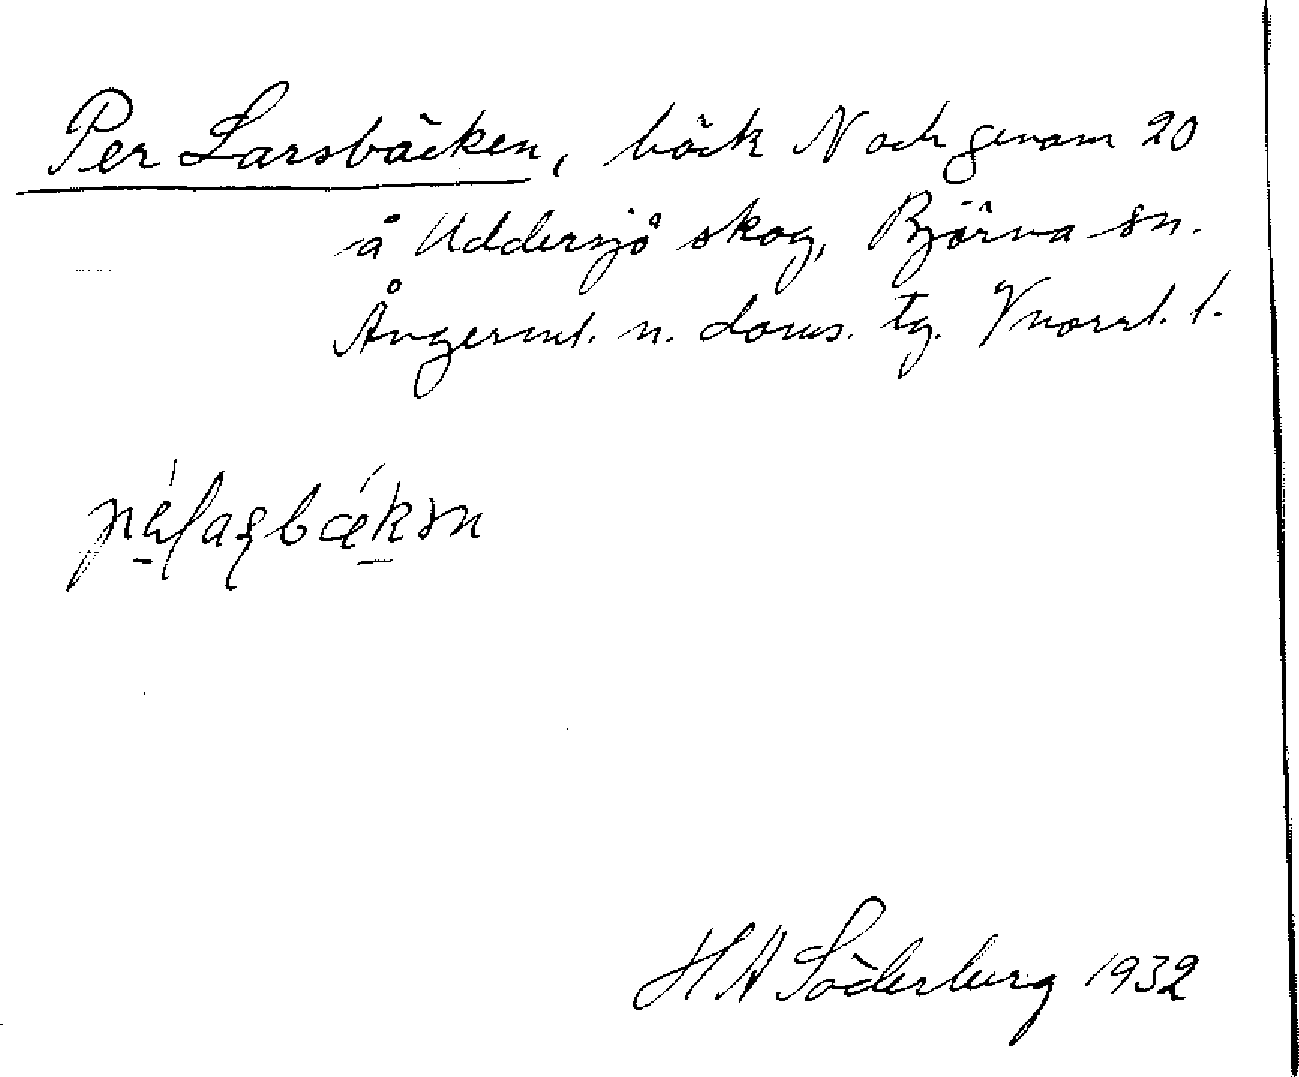 Per Larsbäcken, bäck N och genom 20
å Uddersjö skog, Björna sn.
Ångerml. n. doms. tg. Vnorrl. l.
HA Söderberg 1932